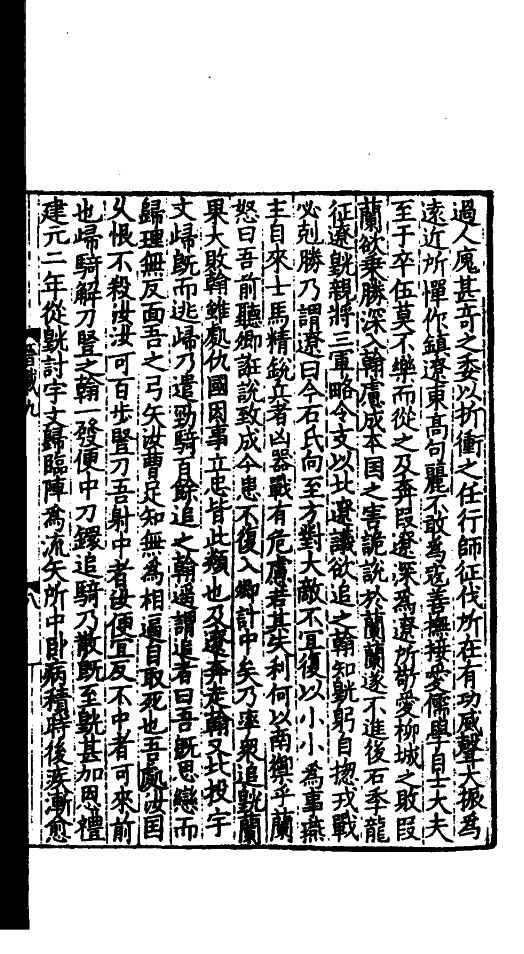 過人廆甚竒之委以折衝之任行師征伐所在有功威聲大振為
遠近所憚作鎮遼東高句驪不敢為寇善撫接愛儒學自士大夫
至于卒伍莫不樂而從之及奔叚遼深為遼所敬愛柳城之敗叚
蘭欲乗勝深入翰慮成本国之害詭說於蘭蘭遂不進後石季龍
征遼皝親將三軍略令支以北遼議欲追之翰知皝躬自揔戎戰
必剋勝乃謂遼曰今石氏向至方對大敵不宜復以小小為事燕
主自來士馬精銳兵者凶器戰有危慮若其失利何以南禦乎蘭
怒曰吾前聽卿誑說致成今患不復入卿計中矣乃率衆追皝蘭
果大敗翰雖處仇國因事立忠皆此類也及遼奔走翰又北投宇
文歸旣而逃歸乃遣勁騎百餘追之翰遥謂追者曰吾旣思戀而
歸理無反面吾之弓矢汝曹足知無為相逼自取死也吾處汝国
乆悵不殺汝汝可百步竪刀吾射中者汝便宜反不中者可來前
也歸騎解刀竪之翰一發便中刀鐶追騎乃散旣至皝甚加恩禮
建元二年從皝討宇文歸臨陣為流矢所中卧病積時後疾漸愈
晉載九
八